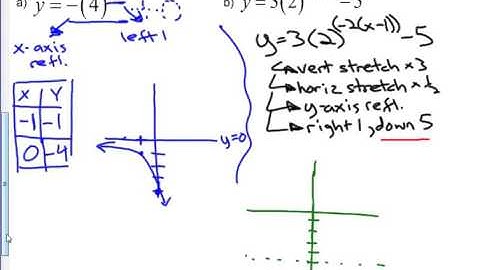 a) y = -(4)
left 1
x-axis
refl.
X Y
-1 -1
0 -4
y=0
b) y = 3(2) - 5
y=3(2)^(-2(x-1)) - 5
vert stretch × 3
horiz stretch × 1/2
y-axis refl.
right 1, down 5